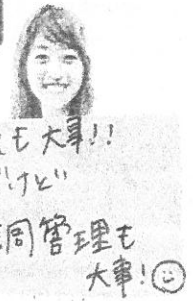 も大事!!
けど
管理も
大事!